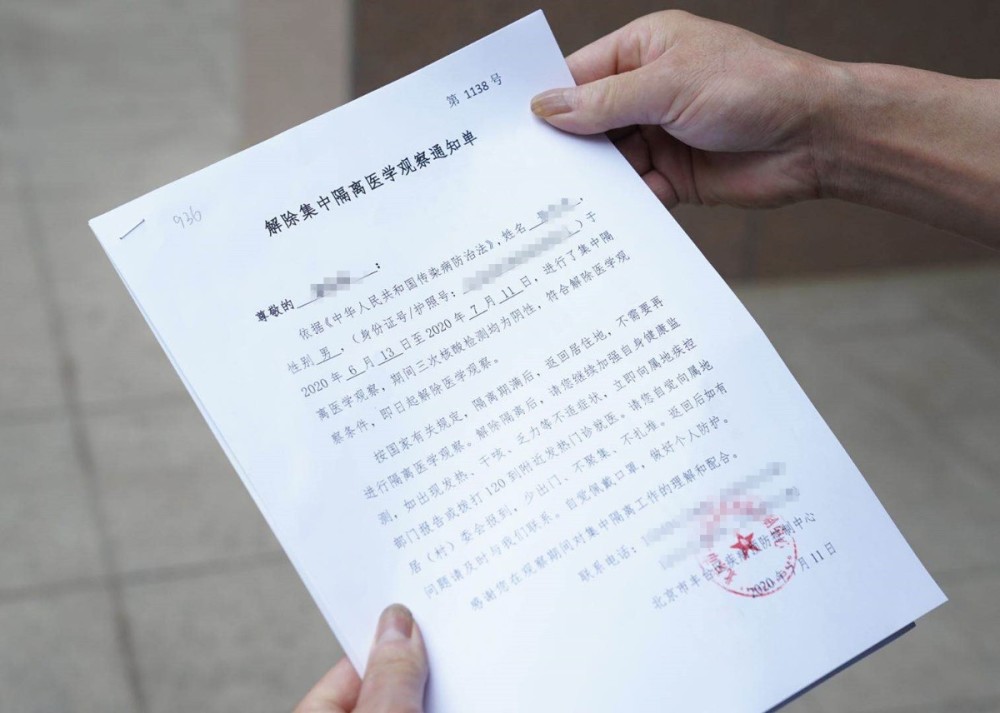 第 1138 号
936
解除集中隔离医学观察通知单
尊敬的:
依据《中华人民共和国传染病防治法》，姓名，
性别 男，（身份证号/护照号：）于
2020 年 6 月 13 日至 2020 年 7 月 11 日，进行了集中隔
离医学观察，期间三次核酸检测均为阴性，符合解除医学观
察条件，即日起解除医学观察。
按国家有关规定，隔离期满后，返回居住地，不需要再
进行隔离医学观察。解除隔离后，请您继续加强自身健康监
测，如出现发热、干咳、乏力等不适症状，立即向属地疾控
部门报告或拨打 120 到附近发热门诊就医。请您自觉向属地
居（村）委会报到，少出门、不聚集、不扎堆。返回后如有
问题请及时与我们联系。自觉佩戴口罩，做好个人防护。
感谢您在观察期间对集中隔离工作的理解和配合。
联系电话：
北京市丰台区疾病预防控制中心
2020 年 7 月 11 日